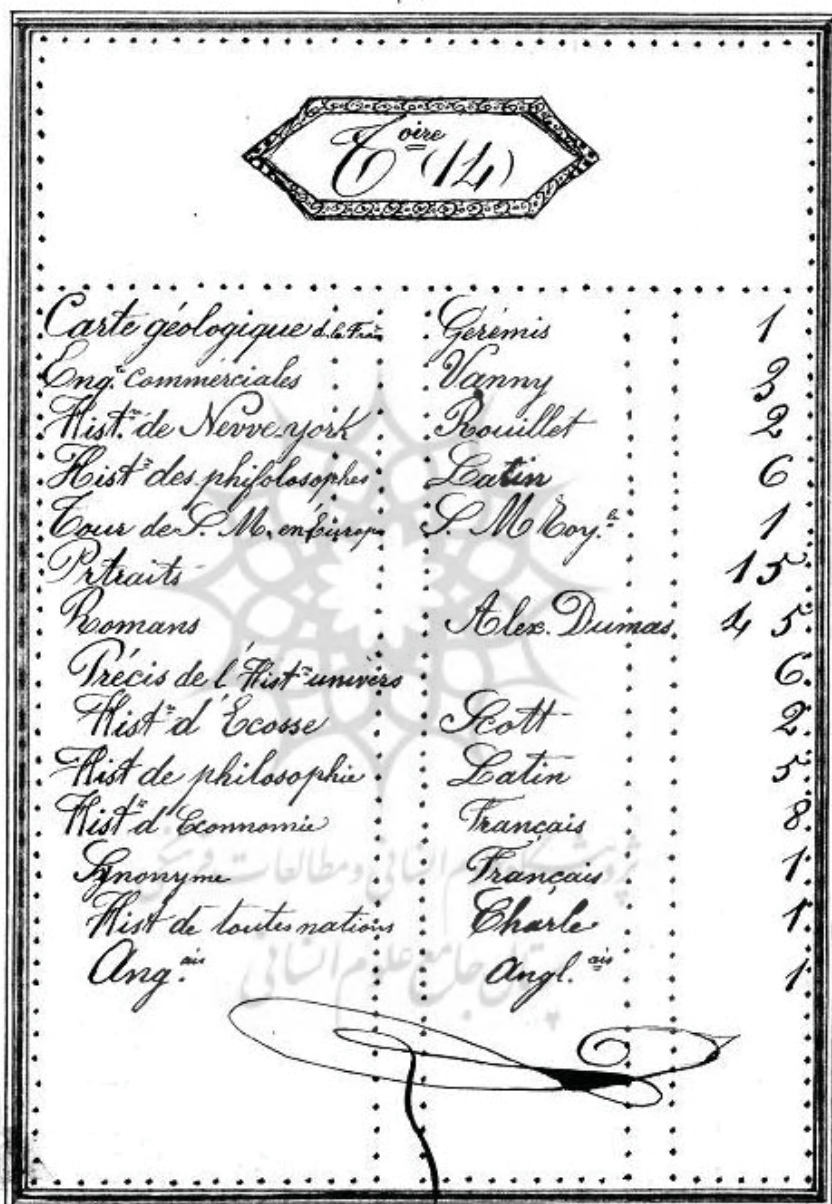 T oire (14)
Carte géologique d. la Fran Gerémis 1
Eng.e Commerciales Vanny 3
Hist.re de Nevve-york Rouillet 2
Hist.re des phifolosophes Latin 6
Tour de S. M. en Europ S. M Roy.le 1
Prtraits 15
Romans Alex. Dumas 45
Précis de l'Hist.re univers 6
Hist.re d'Ecosse Scott 2
Hist de philosophie Latin 5
Hist.re d'Econnomie Français 8
Synonyme Français 1
Hist de toutes nations Charle 1
Ang.ais Angl.ais 1
پژوهشگاه علوم انسانی و مطالعات فرهنگی
پرتال جامع علوم انسانی